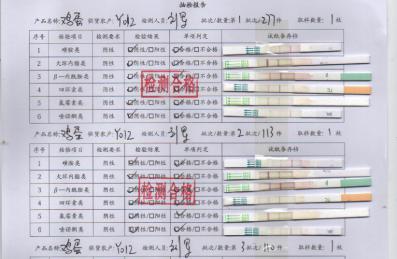 抽检报告
产品名称:鸡蛋 供货农户:Y012 检测人员: 批次/数量:第1批次/277件 取样数量:1枚
序号 检验项目 检测要求 检验结果 单项判定 试纸条存档
1 磺胺类 阴性 ☑阴性/☐阳性 ☑合格/☐不合格
2 大环内酯类 阴性 ☑阴性/☐阳性 ☑合格/☐不合格
3 β-内酰胺类 阴性 ☑阴性/☐阳性 ☑合格/☐不合格
4 四环素类 阴性 ☑阴性/☐阳性 ☑合格/☐不合格
5 氟苯尼类 阴性 ☑阴性/☐阳性 ☑合格/☐不合格
6 喹诺酮类 阴性 ☑阴性/☐阳性 ☑合格/☐不合格
检测合格
产品名称:鸡蛋 供货农户:Y012 检测人员: 批次/数量:第2批次/113件 取样数量:1枚
序号 检验项目 检测要求 检验结果 单项判定 试纸条存档
1 磺胺类 阴性 ☑阴性/☐阳性 ☑合格/☐不合格
2 大环内酯类 阴性 ☑阴性/☐阳性 ☑合格/☐不合格
3 β-内酰胺类 阴性 ☑阴性/☐阳性 ☑合格/☐不合格
4 四环素类 阴性 ☑阴性/☐阳性 ☑合格/☐不合格
5 阴性 ☑阴性/☐阳性 ☑合格/☐不合格
6 喹诺酮类 阴性 ☑阴性/☐阳性 ☑合格/☐不合格
检测合格
产品名称:鸡蛋 供货农户:Y012 检测人员: 批次/数量:第3批次/ 件 取样数量:1枚